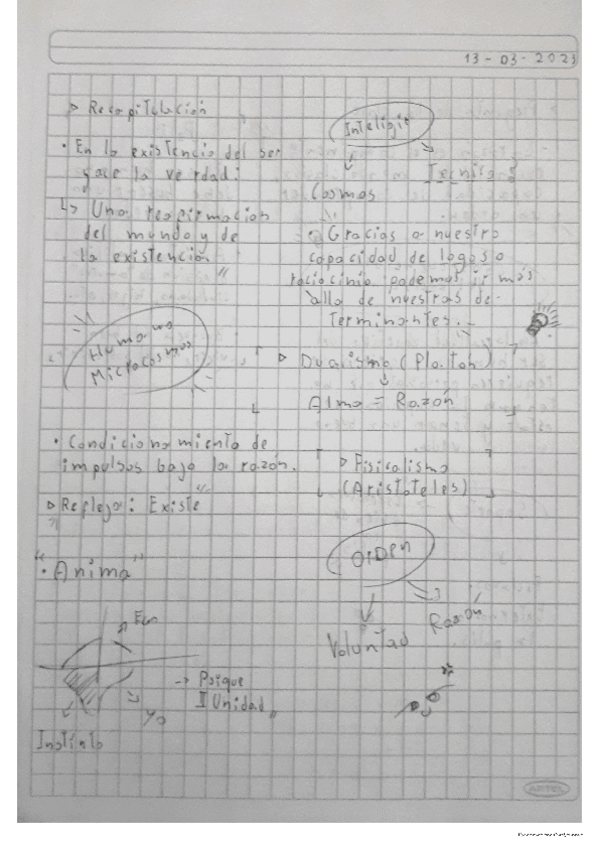 13-03-2023
▷ Recapitulación
• En la existencia del ser
yace la verdad:
↳ Una reafirmación
del mundo y de
la existencia "
Humano
Microcosmos
• Condicionamiento de
impulsos bajo la razón.
▷ Refleja: Existe
"• Anima"
Ego
Yo
Instinto
→ Psique
Unidad"
Inteligir
Cosmos
Técnicas
• Gracias a nuestra
capacidad de logos o
raciocinio podemos ir más
alla de nuestras de-
terminantes.
▷ Dualismo (Platón)
Alma = Razón
▷ Fisicalismo
(Aristóteles)
Orden
Voluntad
Razón
ARTEL